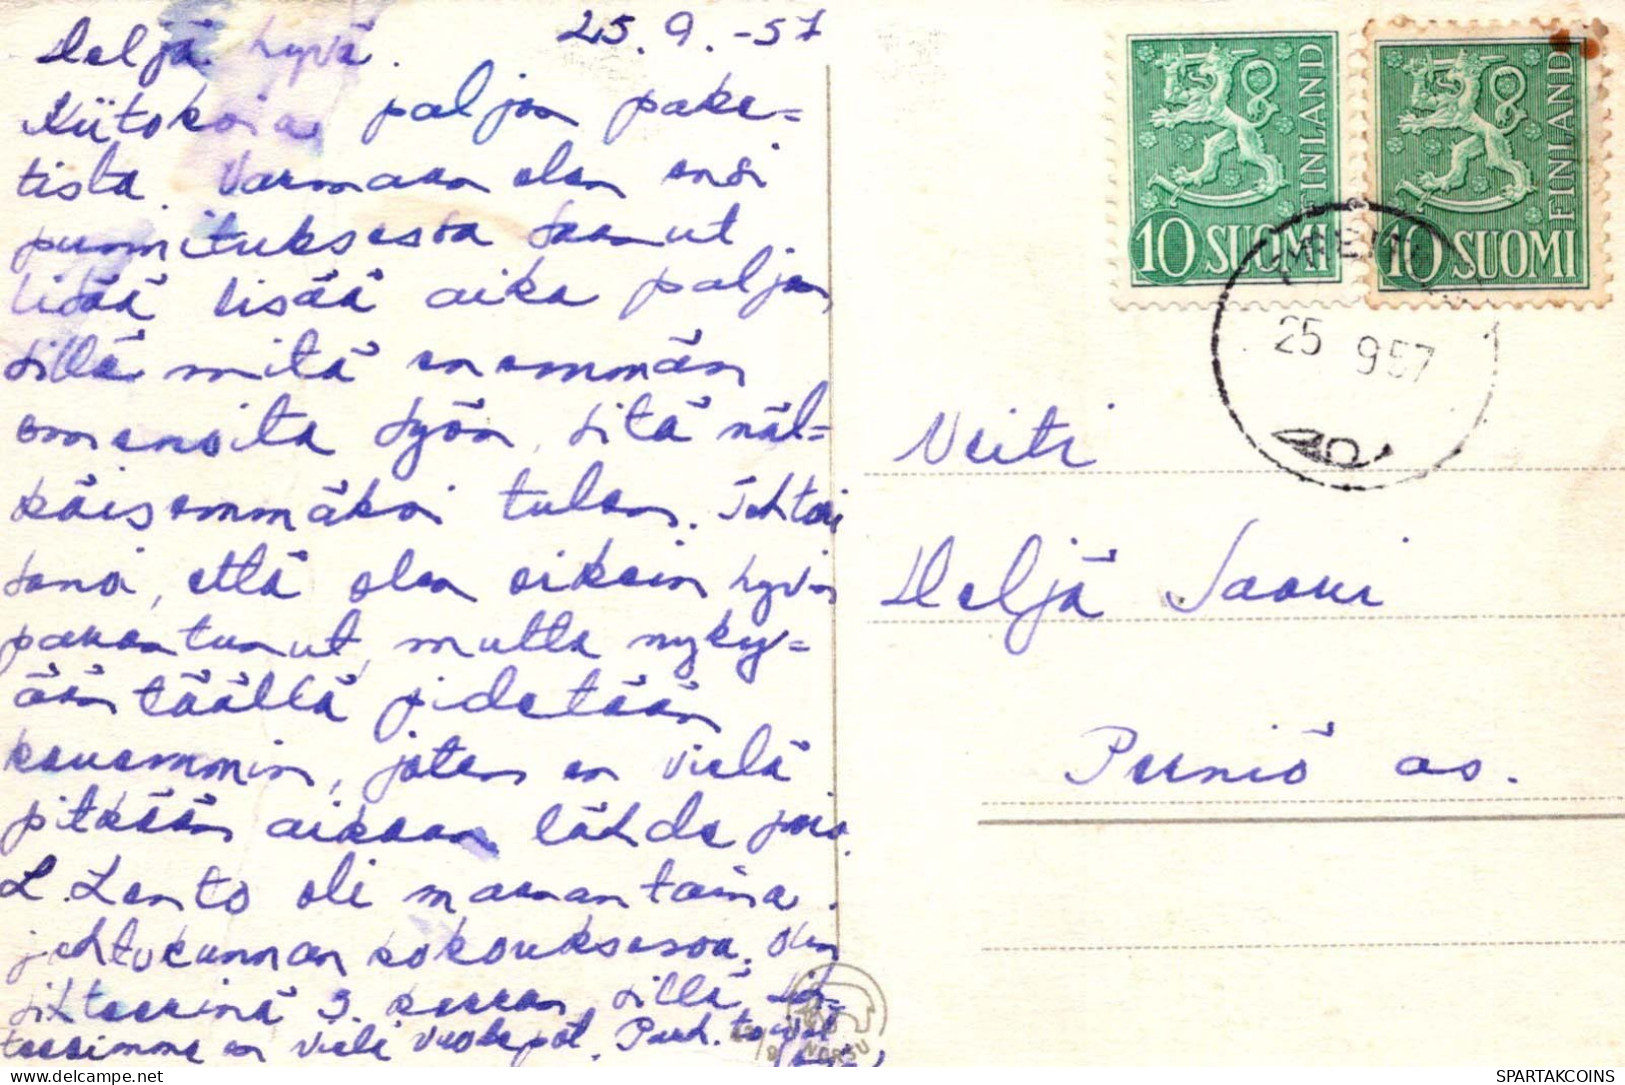 25.9.-57
Heljä hyvä.
Kiitoksia paljon pake=
tista. Varmaan olen ensi
punnituksessa saanut
lisää lisää aika paljon,
sillä mitä enemmän
omenoita syön, sitä näl=
käisemmäksi tulen. Tohtori
sanoi, että olen oikein hyvin
parantunut, mutta nyky=
ään täällä pidetään
kauemmin, joten en vielä
pitkään aikaan lähde pois.
L. Lento oli maanantaina
johtokunnan kokouksessa. Olin
sihteerinä 3. kerran, sillä sih=
teerimme on vielä vuodepot.
FINLAND
10 SUOMI
FINLAND
10 SUOMI
25 9 57
Neiti
Heljä Saari
Perniö as.
NORSU
SPARTAKCOINS